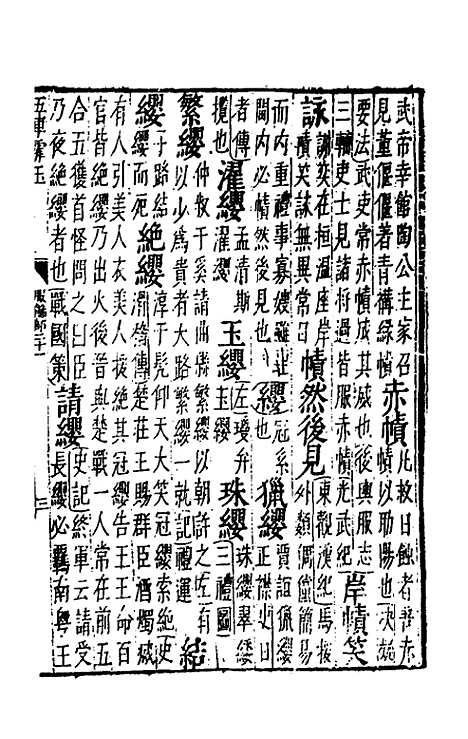 武帝幸館陶公主家召
見董偃偃著青褠綠幘
赤幘
凡救日飴者普赤
幘以助陽也次競
要法武吏常赤幘成其威也後輿服志
三輔吏士見諸將過皆服赤幘光武紀
岸幘笑
詠
謝奕在桓溫座岸
幘笑詠無異常日
幘然後見
東觀漢紀馬援
外類倜儻簡易
而内重禮事寡嫂雖在
閫内必幘然後見也
纓
冠系
也
獵纓
賈誼獵纓
正襟史日
者傳
攬也
濯纓
孟清斯
濯纓
玉纓
左瓊弁
玉纓
珠纓
珠纓翠緌
三禮圖
繁纓
仲叔于奚請曲縣繁纓以朝許之左有
以少為貴者大路繁纓一就記禮運
結
纓
子路結
纓而死
絶纓
淳于髡仰天大笑冠纓索絶史
滑稽傳楚莊王賜群臣酒燭滅
有人引美人衣美人援絶其冠纓告王王命百
官皆絶纓乃出火後晉與楚戰一人常在前五
合五獲首怪問之曰臣
乃夜絶纓者也戰國策
請纓
史記終軍云請受
長纓必羈南粤王
五車霏玉
服飾部二十一
三